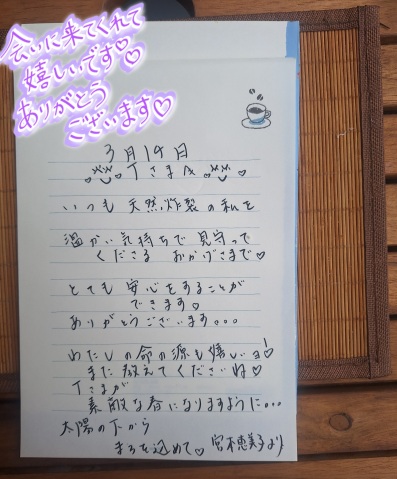 会いに来てくれて
嬉しいです♡♡
ありがとう
ございます♡
3月14日
Tさま
いつも 天然炸裂の私を
温かい気持ちで 見守って
くださる おかげさまで♡
とても 安心をすることが
できます。
ありがとうございます。。。
わたしの命の源も嬉しいョ!
また 教えてくださいね♡
Tさまが
素敵な春になりますように。。。
太陽の下から
を込めて♡ 宮本恵美子より